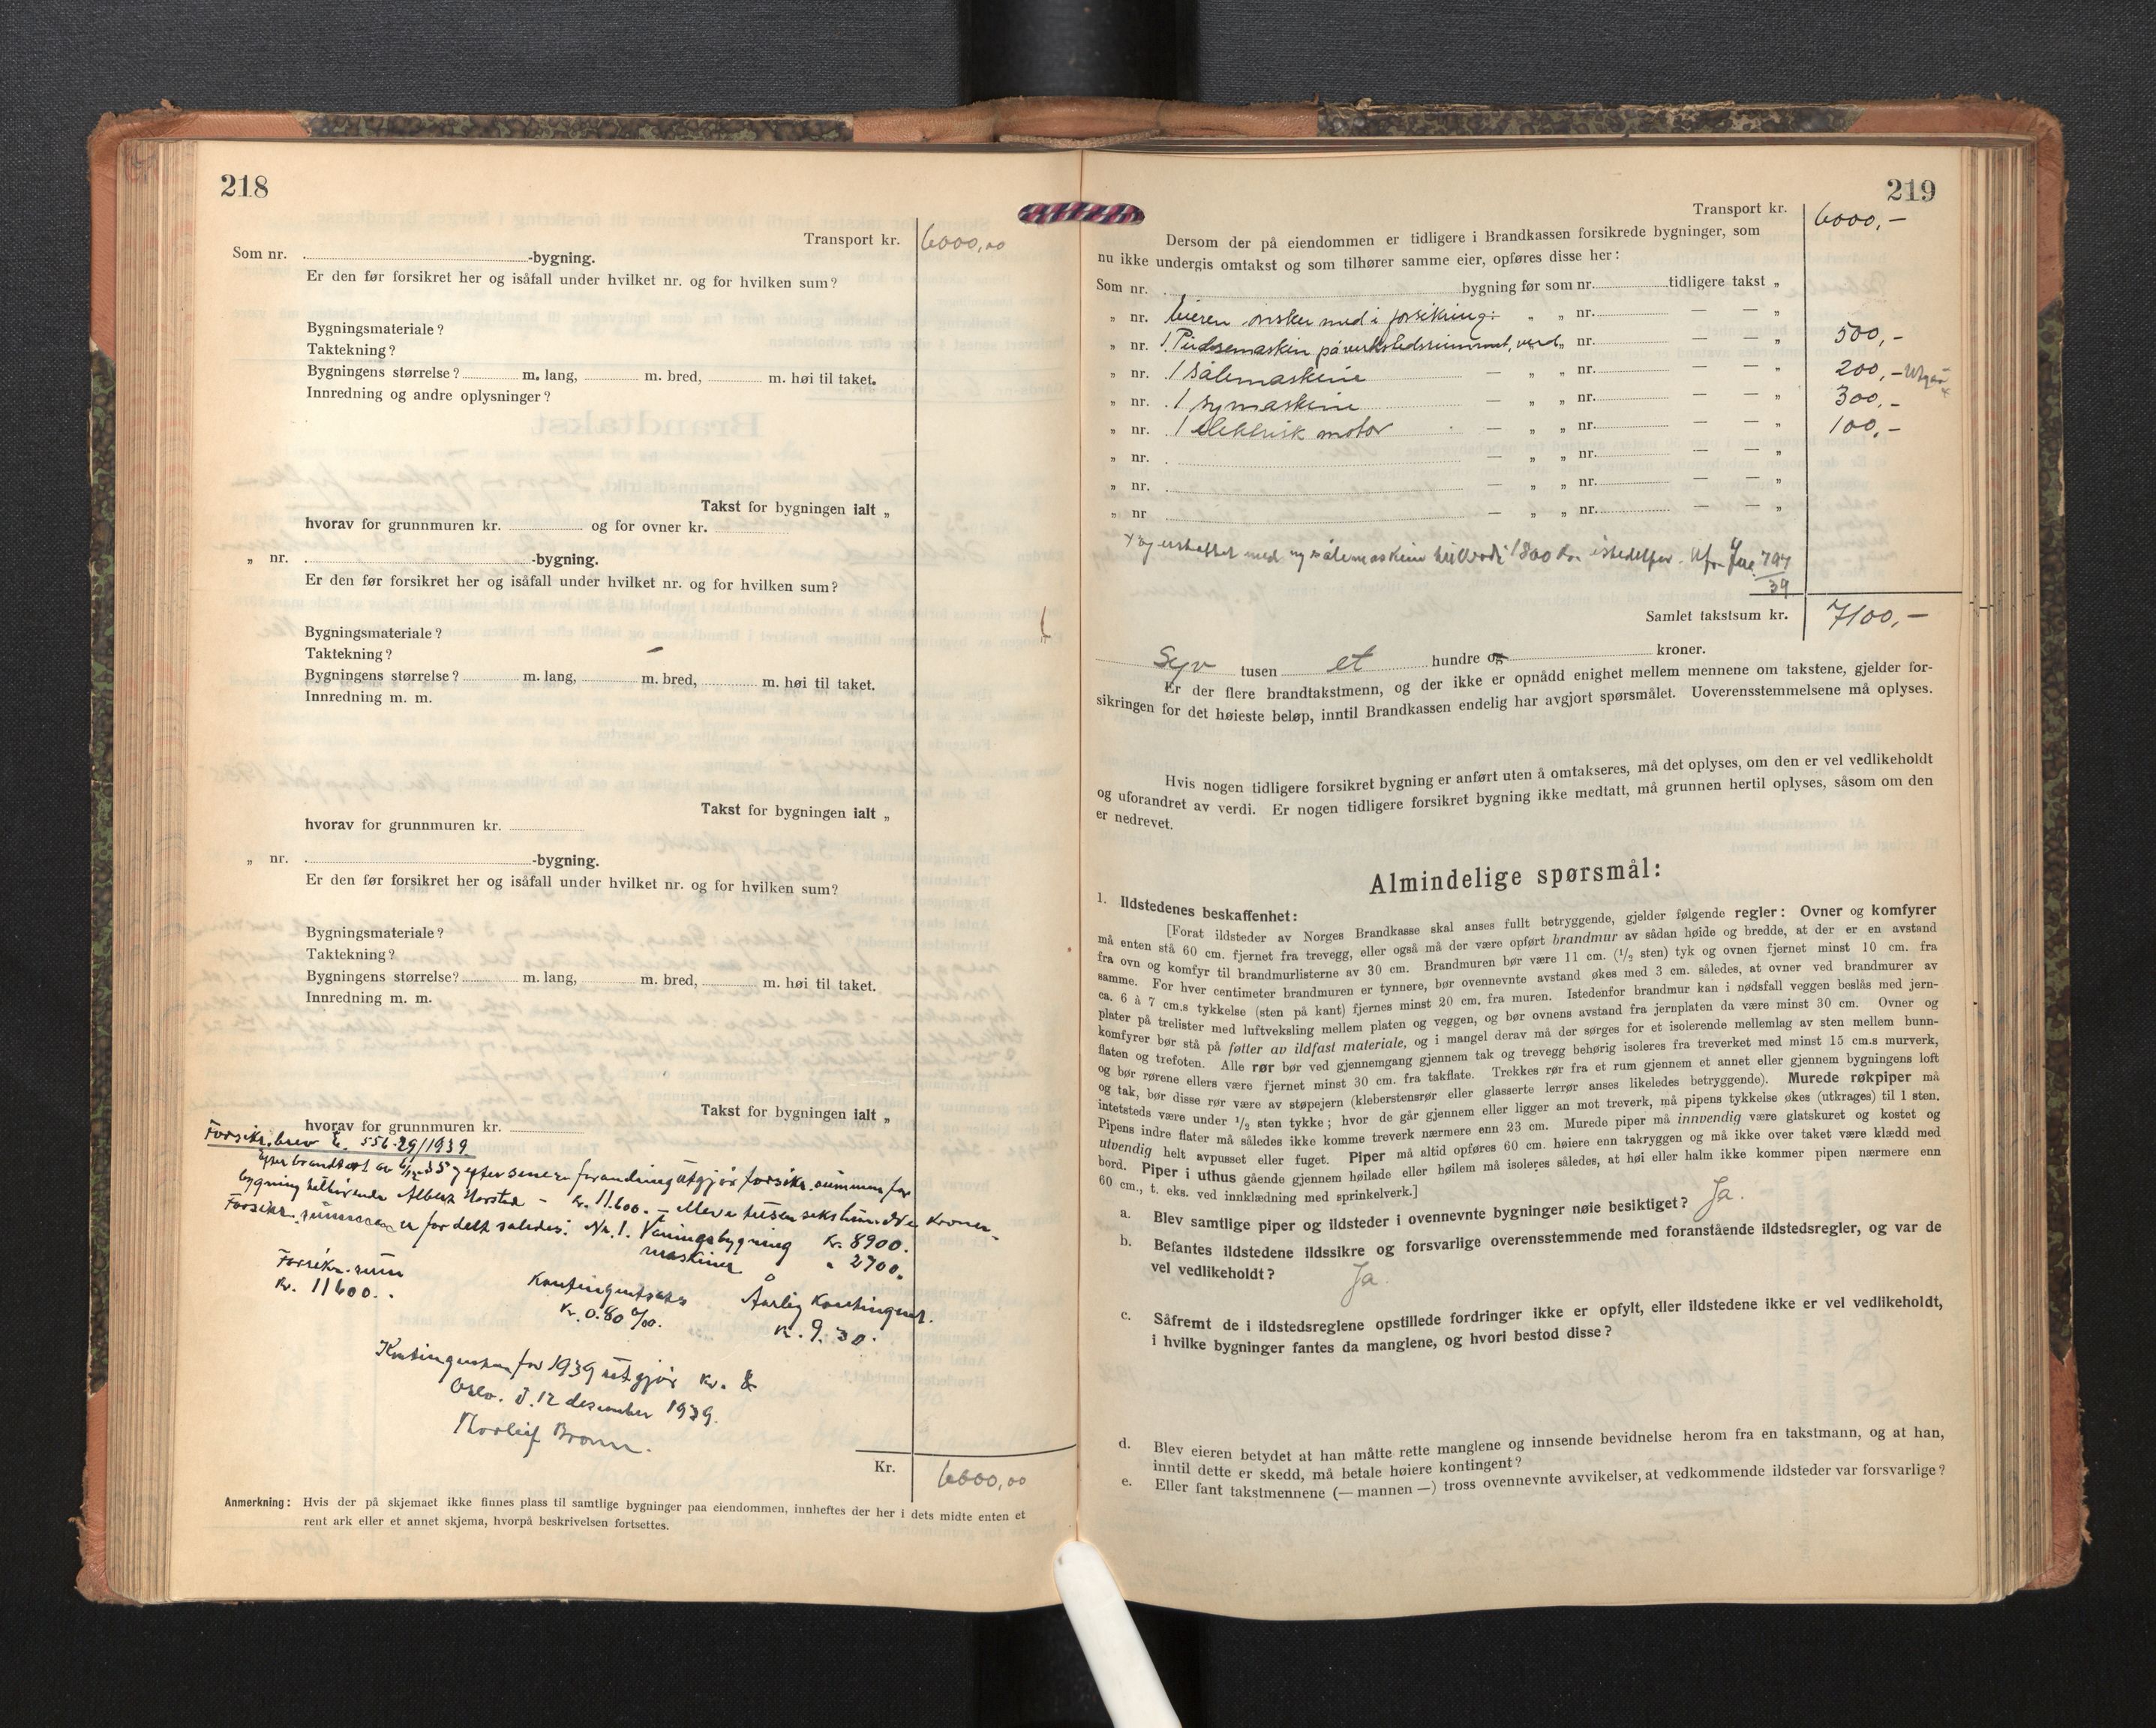 218
Transport kr. 6000,00
Som nr. -bygning.
Er den før forsikret her og isåfall under hvilket nr. og for hvilken sum?
Bygningsmateriale?
Taktekning?
Bygningens størrelse? m. lang, m. bred, m. høi til taket.
Innredning og andre oplysninger?
Takst for bygningen ialt „
hvorav for grunnmuren kr. og for ovner kr.
„ nr. -bygning.
Er den før forsikret her og isåfall under hvilket nr. og for hvilken sum?
Bygningsmateriale?
Taktekning?
Bygningens størrelse? m. lang, m. bred, m. høi til taket.
Innredning m. m.
Takst for bygningen ialt „
hvorav for grunnmuren kr.
„ nr. -bygning.
Er den før forsikret her og isåfall under hvilket nr. og for hvilken sum?
Bygningsmateriale?
Taktekning?
Bygningens størrelse? m. lang, m. bred, m. høi til taket.
Innredning m. m.
Takst for bygningen ialt „
hvorav for grunnmuren kr.
Forsikr.brev 556-29/1939
Efter brandtakst av 35 og efter senere forandring utgjør forsikr.summen for
bygning tilhørende Albert Horstad - Kr. 11.600. - elleve tusen sekshundre Kroner -
Forsikr.summen er fordelt således: Nr. 1. Våningsbygning Kr. 8900.
maskiner " 2700.
Forsikr.sum Kontingentsats Årlig Kontingent.
Kr. 11600. Kr. 0.80 ‰. Kr. 9.30.
Kontingenten for 1939 utgjør Kr.
Oslo. d. 12 desember 1939.
Thorleif Bronn.
Kr. 6000,00
Anmerkning: Hvis der på skjemaet ikke finnes plass til samtlige bygninger paa eiendommen, innheftes der her i dets midte enten et
rent ark eller et annet skjema, hvorpå beskrivelsen fortsettes.
219
Transport kr. 6000,-
Dersom der på eiendommen er tidligere i Brandkassen forsikrede bygninger, som
nu ikke undergis omtakst og som tilhører samme eier, opføres disse her:
Som nr. bygning før som nr. tidligere takst „
„ nr. Eieren ønsker med i forsikring: „ „ nr. — — „
„ nr. 1 Pudsemaskin på verkstedsrummet, verd „ nr. — — „ 500,-
„ nr. 1 sålemaskine — „ „ nr. — — „ 200,- Utgår
„ nr. 1 symaskine — „ „ nr. — — „ 300,-
„ nr. 1 elektrisk motor — „ „ nr. — — „ 100,-
„ nr. — „ „ nr. — — „
„ nr. — „ „ nr. — — „
„ nr — „ „ nr. — — „
x og erstattet med ny sålemaskine til verdi 1800 kr. istedetfor. 797
39
Samlet takstsum kr. 7100,-
Syv tusen et hundre og kroner.
Er der flere brandtakstmenn, og der ikke er opnådd enighet mellem mennene om takstene, gjelder for-
sikringen for det høieste beløp, inntil Brandkassen endelig har avgjort spørsmålet. Uoverensstemmelsene må oplyses.
Hvis nogen tidligere forsikret bygning er anført uten å omtakseres, må det oplyses, om den er vel vedlikeholdt
og uforandret av verdi. Er nogen tidligere forsikret bygning ikke medtatt, må grunnen hertil oplyses, såsom om den
er nedrevet.
Almindelige spørsmål:
1. Ildstedenes beskaffenhet:
[Forat ildsteder av Norges Brandkasse skal anses fullt betryggende, gjelder følgende regler: Ovner og komfyrer
må enten stå 60 cm. fjernet fra trevegg, eller også må der være opført brandmur av sådan høide og bredde, at der er en avstand
fra ovn og komfyr til brandmurlisterne av 30 cm. Brandmuren bør være 11 cm. (1/2 sten) tyk og ovnen fjernet minst 10 cm. fra
samme. For hver centimeter brandmuren er tynnere, bør ovennevnte avstand økes med 3 cm. således, at ovner ved brandmurer av
ca. 6 à 7 cm.s tykkelse (sten på kant) fjernes minst 20 cm. fra muren. Istedenfor brandmur kan i nødsfall veggen beslås med jern-
plater på trelister med luftveksling mellem platen og veggen, og bør ovnens avstand fra jernplaten da være minst 30 cm. Ovner og
komfyrer bør stå på føtter av ildfast materiale, og i mangel derav må der sørges for et isolerende mellemlag av sten mellem bunn-
flaten og trefoten. Alle rør bør ved gjennemgang gjennem tak og trevegg behørig isoleres fra treverket med minst 15 cm.s murverk,
og bør rørene ellers være fjernet minst 30 cm. fra takflate. Trekkes rør fra et rum gjennem et annet eller gjennem bygningens loft
og tak, bør disse rør være av støpejern (kleberstensrør eller glasserte lerrør anses likeledes betryggende). Murede røkpiper må
intetsteds være under 1/2 sten tykke; hvor de går gjennem eller ligger an mot treverk, må pipens tykkelse økes (utkrages) til 1 sten.
Pipens indre flater må således ikke komme treverk nærmere enn 23 cm. Murede piper må innvendig være glatskuret og kostet og
utvendig helt avpusset eller fuget. Piper må altid opføres 60 cm. høiere enn takryggen og må ikke over taket være klædd med
bord. Piper i uthus gående gjennem høilade eller høilem må isoleres således, at høi eller halm ikke kommer pipen nærmere enn
60 cm., t. eks. ved innklædning med sprinkelverk.]
a. Blev samtlige piper og ildsteder i ovennevnte bygninger nøie besiktiget? Ja.
b. Befantes ildstedene ildssikre og forsvarlige overensstemmende med foranstående ildstedsregler, og var de
vel vedlikeholdt? Ja.
c. Såfremt de i ildstedsreglene opstillede fordringer ikke er opfylt, eller ildstedene ikke er vel vedlikeholdt,
i hvilke bygninger fantes da manglene, og hvori bestod disse?
d. Blev eieren betydet at han måtte rette manglene og innsende bevidnelse herom fra en takstmann, og at han,
inntil dette er skedd, må betale høiere kontingent?
e. Eller fant takstmennene (— mannen —) tross ovennevnte avvikelser, at vedkommende ildsteder var forsvarlige?